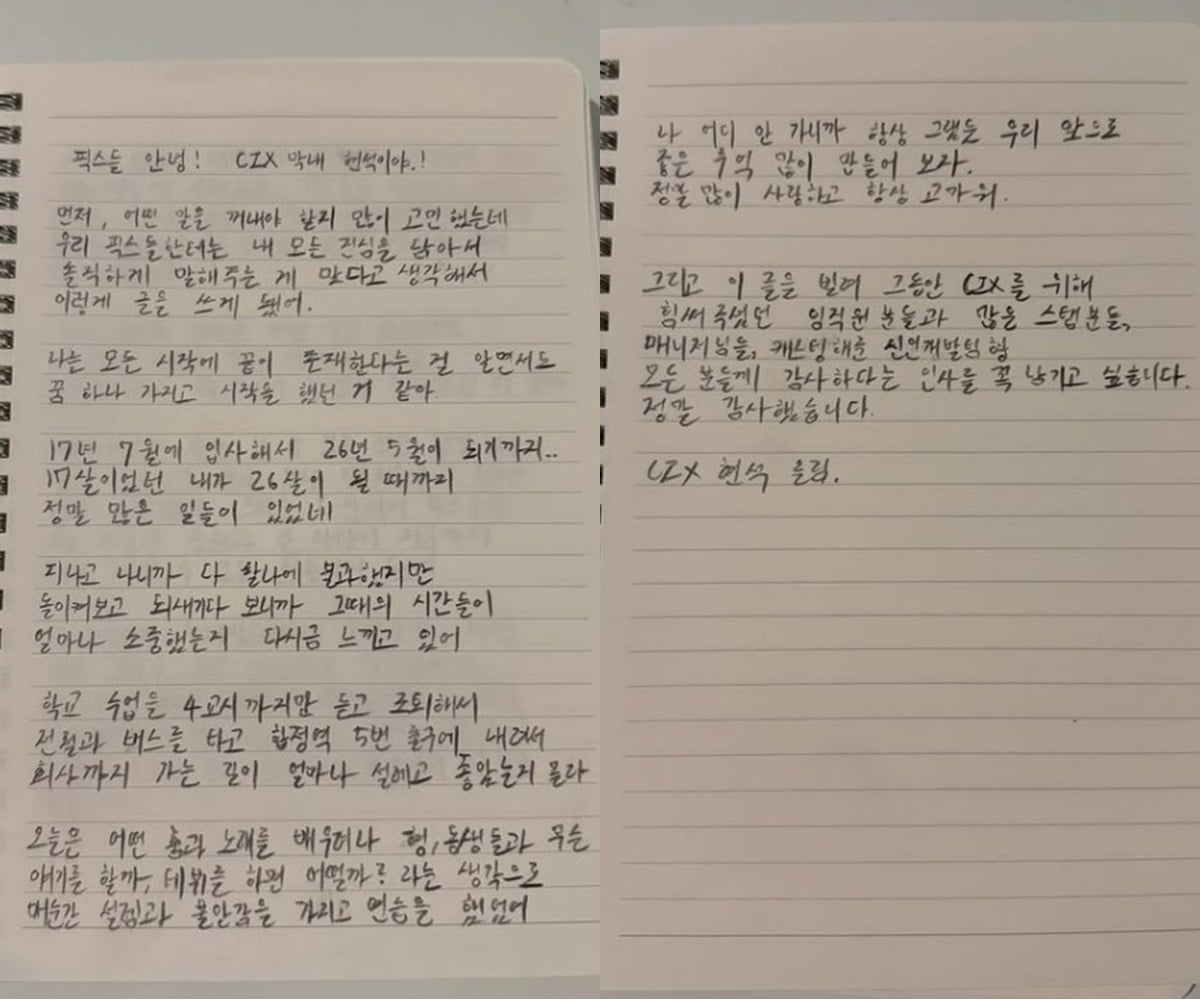 픽스들 안녕! CIX 막내 현석이야.!
먼저, 어떤 말을 꺼내야 할지 많이 고민했는데
우리 픽스들한테는 내 모든 진심을 담아서
솔직하게 말해주는 게 맞다고 생각해서
이렇게 글을 쓰게 됐어.
나는 모든 시작에 끝이 존재한다는 걸 알면서도
꿈 하나 가지고 시작을 했던 거 같아
17년 7월에 입사해서 26년 5월이 되기까지..
17살이었던 내가 26살이 될 때까지
정말 많은 일들이 있었네
지나고 나니까 다 찰나에 불과했지만
돌이켜보고 되새기다 보니까 그때의 시간들이
얼마나 소중했는지 다시금 느끼고 있어
학교 수업을 4교시까지만 듣고 조퇴해서
전철과 버스를 타고 합정역 5번 출구에 내려서
회사까지 가는 길이 얼마나 설레고 좋았는지 몰라
오늘은 어떤 춤과 노래를 배우려나 형, 동생들과 무슨
얘기를 할까, 데뷔를 하면 어떨까? 라는 생각으로
매순간 설렘과 불안감을 가지고 연습을 했었어
나 어디 안 가니까 항상 그랬듯 우리 앞으로
좋은 추억 많이 만들어 보자.
정말 많이 사랑하고 항상 고마워.
그리고 이 글을 빌려 그동안 CIX를 위해
힘써주셨던 임직원분들과 많은 스탭분들,
매니저님들, 캐스팅해준 신인개발팀 합
모든 분들께 감사하다는 인사를 꼭 남기고 싶습니다.
정말 감사했습니다.
CIX 현석 올림.